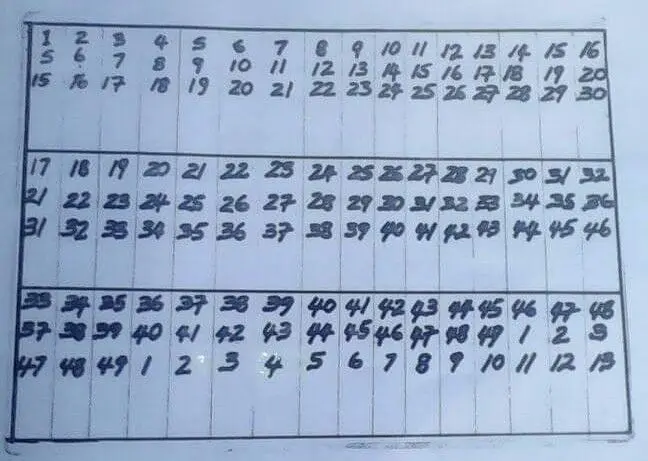 1 2 3 4 5 6 7 8 9 10 11 12 13 14 15 16
5 6 7 8 9 10 11 12 13 14 15 16 17 18 19 20
15 16 17 18 19 20 21 22 23 24 25 26 27 28 29 30
17 18 19 20 21 22 23 24 25 26 27 28 29 30 31 32
21 22 23 24 25 26 27 28 29 30 31 32 33 34 35 36
31 32 33 34 35 36 37 38 39 40 41 42 43 44 45 46
33 34 35 36 37 38 39 40 41 42 43 44 45 46 47 48
37 38 39 40 41 42 43 44 45 46 47 48 49 1 2 3
47 48 49 1 2 3 4 5 6 7 8 9 10 11 12 13